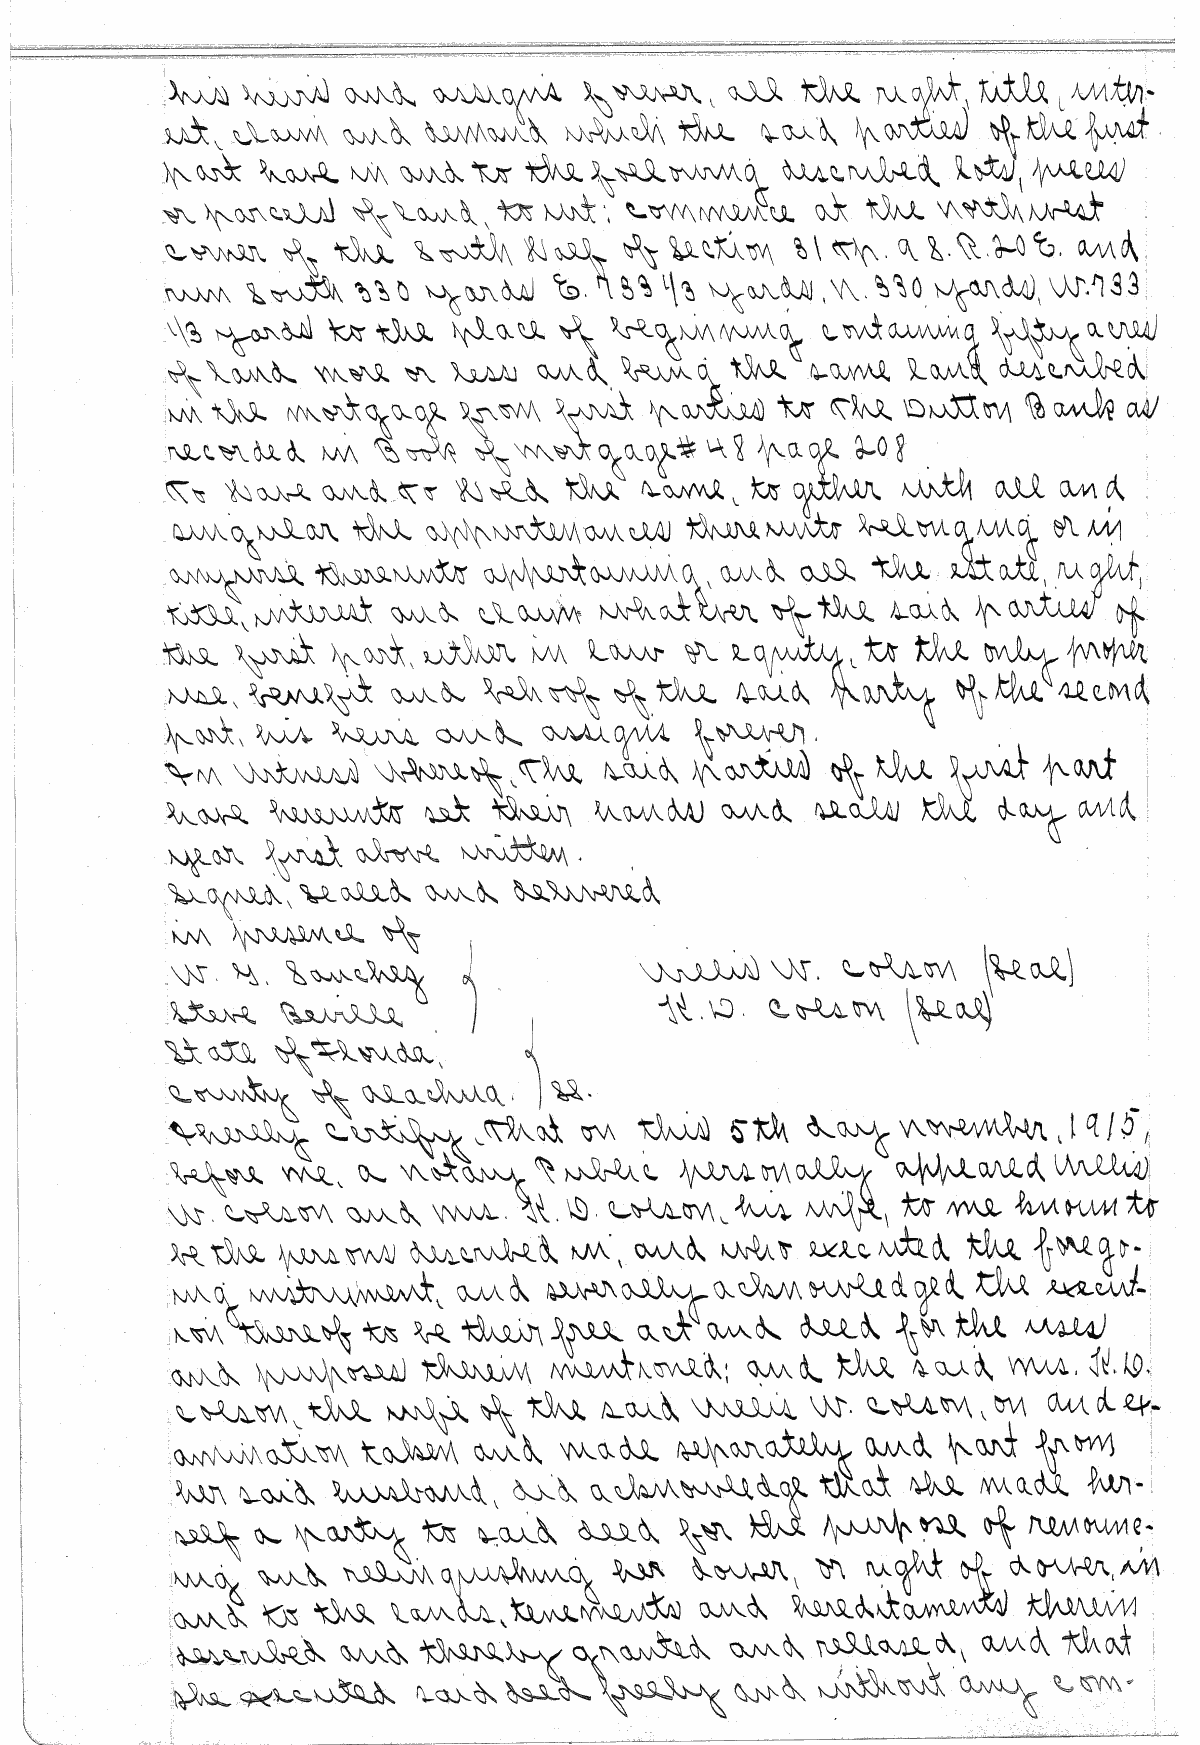 his heirs and assigns forever, all the right, title, inter-
est, claim and demand which the said parties of the first
part have in and to the following described lots, pieces
or parcels of land, to wit: commence at the northwest
corner of the South Half of Section 31 Tp. 9 S. R. 20 E. and
run South 330 yards E. 733 1/3 yards, N. 330 yards, W. 733
1/3 yards to the place of beginning containing fifty acres
of land more or less and being the same land described
in the mortgage from first parties to The Dutton Bank as
recorded in Book of mortgage # 48 page 208
To Have and To Hold the same, together with all and
singular the appurtenances thereunto belonging or in
anywise thereunto appertaining, and all the estate, right,
title, interest and claim whatever of the said parties of
the first part, either in law or equity, to the only proper
use, benefit and behoof of the said party of the second
part, his heirs and assigns forever.
In Witness Whereof, The said parties of the first part
have hereunto set their hands and seals the day and
year first above written.
Signed, Sealed and delivered
in presence of
W. G. Sanchez Willis W. Colson (Seal)
Steve Beville K. D. Colson (Seal)
State of Florida,
County of Alachua. SS.
I hereby certify, That on this 5th day november, 1915,
before me, a notary Public personally appeared Willis
W. Colson and Mrs. K. D. Colson, his wife, to me known to
be the persons described in, and who executed the forego-
ing instrument, and severally acknowledged the execut-
ion thereof to be their free act and deed for the uses
and purposes therein mentioned; and the said Mrs. K. D.
Colson, the wife of the said Willis W. Colson, on and ex-
amination taken and made separately and part from
her said husband, did acknowledge that she made her-
self a party to said deed for the purpose of renounc-
ing and relinquishing her dower, or right of dower, in
and to the lands, tenements and hereditaments therein
described and thereby granted and released, and that
she executed said deed freely and without any com-